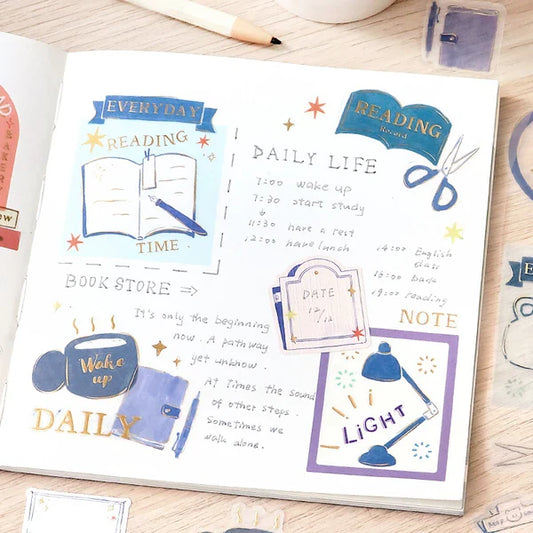 EVERYDAY
READING
TIME
READING
Record
DAILY LIFE
7:00 wake up
7:30 start study
11:30 have a rest
12:00 have lunch
14:00 English
19:00 reading
BOOK STORE ⇒
DATE
12/12
NOTE
It's only the beginning
now. A pathway
yet unknow.
Wake
up
At times the sound
of other steps.
Sometimes we
walk alone.
DAILY
LiGHT
BAKERY